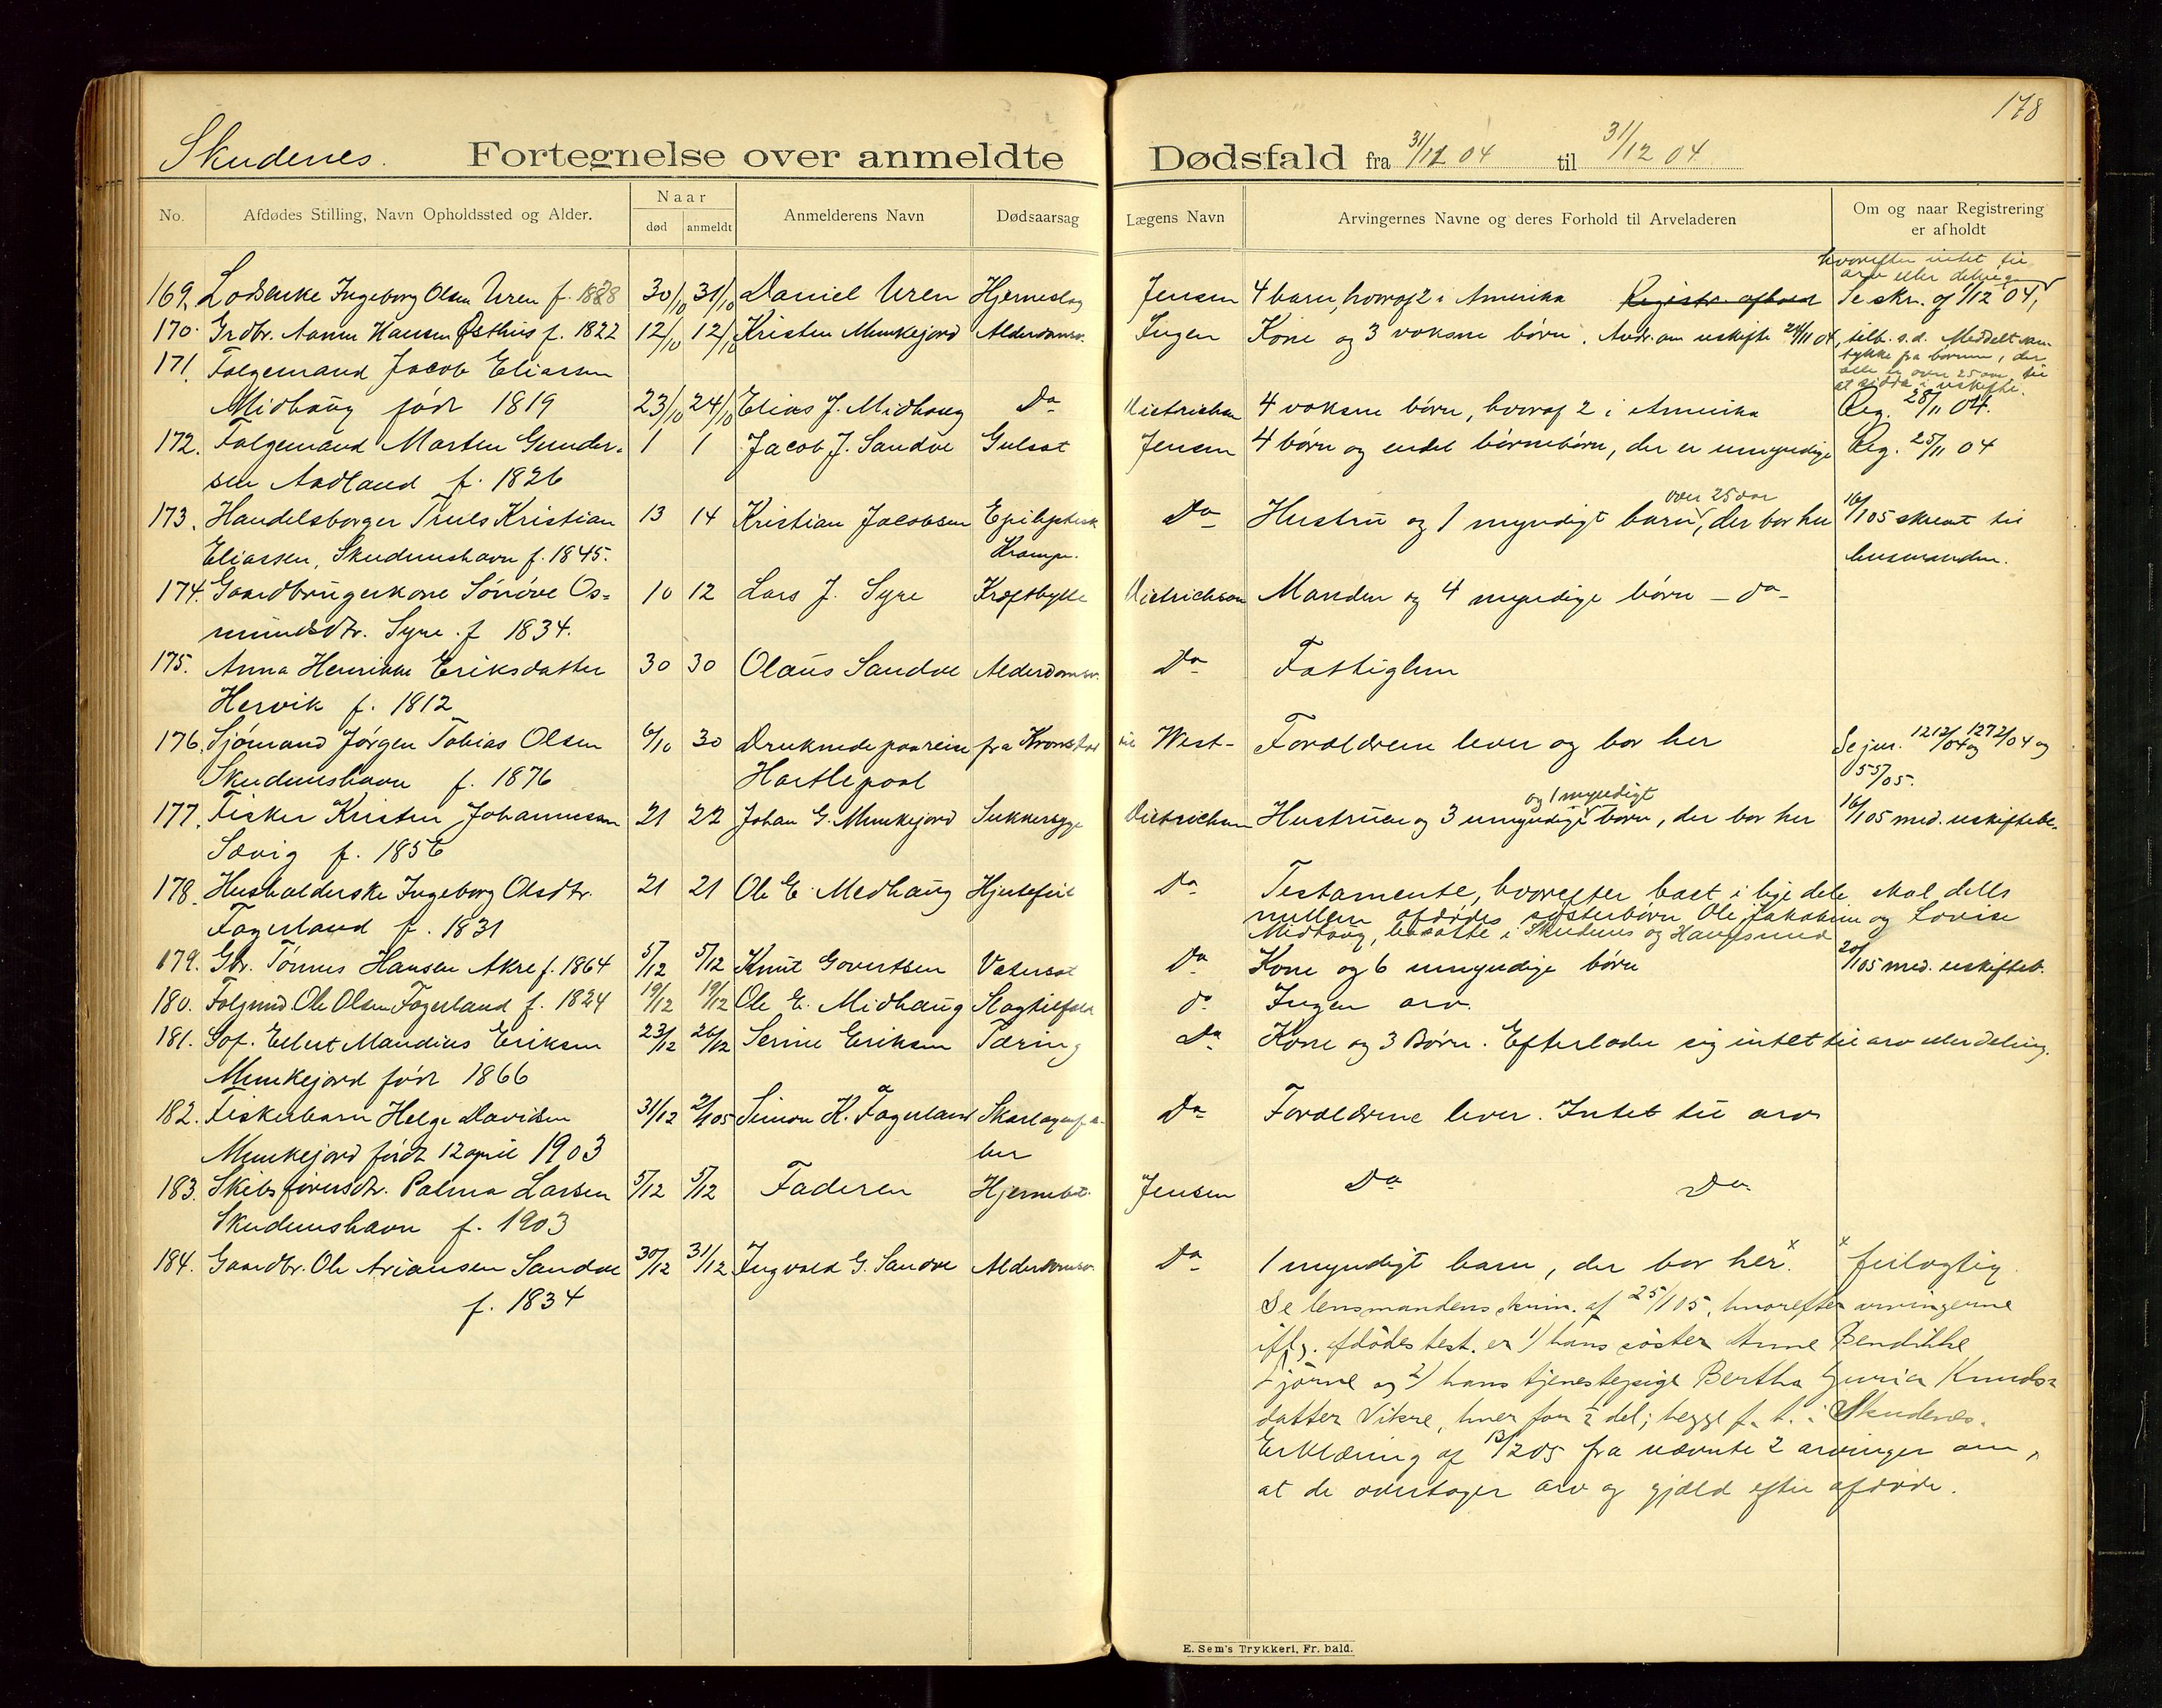 178
Skudenes. Fortegnelse over anmeldte Dødsfald fra 31/12 04 til 31/12 04
No. Afdødes Stilling, Navn Opholdssted og Alder. Naar død anmeldt Anmelderens Navn Dødsaarsag Lægens Navn Arvingernes Navne og deres Forhold til Arveladeren Om og naar Registrering er afholdt
hvorefter intet til
arv eller deling
169. Lodsenke Ingeborg Olsen Uren f. 1828 30/10 31/10 Daniel Uren Hjerneslag Jensen 4 barn, hvoraf 2 i Amerika Registr. afhold Se skr. af 1/12 04,
170. Grdbr. Aamu Hansen Østhus f. 1822 12/10 12/10 Kristen Munkejord Alderdomsv. Ingen Kone og 3 voksne børn. Andr. om uskifte 24/11 04, tilb. s.d. Meddelt sam-
tykke fra børnene, der
alle er over 25 aar, til
at sidde i uskifte.
171. Folgemand Jacob Eliassen
Midhaug født 1819 23/10 24/10 Elias J. Midhaug Do Dietrichson 4 voksne børn, hvoraf 2 i Amerika Reg. 28/11 04.
172. Folgemand Morten Gunder-
sen Aadland f. 1826 1 1 Jacob J. Sandve Gulsot Jensen 4 børn og endel børnebørn, der er umyndige Reg. 25/11 04
173. Handelsborger Truls Kristian 13 14 Kristian Jacobsen Epileptisk Do Hustru og 1 myndigt barn, over 25 aar der bor her 16/1 05 skrevet til
Eliassen, Skudeneshavn f. 1845. Krampe. lensmanden.
174. Gaardbrugerkone Sønøve Os- 10 12 Lars J. Syre Kræftbylde Dietrichson Manden og 4 myndige børn - do -
mundsdtr. Syre. f 1834.
175. Anna Henrikke Eriksdatter 30 30 Olaus Sandve Alderdomsv. Do Fattiglem
Hervik f. 1812
176. Sjømand Jørgen Tobias Olsen 6/10 30 Druknede paa reise fra Kronstad til West- Forældrene lever og bor her Se jur. 1212/04 og 1272/04 og
Skudeneshavn f. 1876 Hartlepool 55/05.
177. Fisker Kristen Johannessen 21 22 Johan G. Munkejord Sukkersyge Dietrichson Hustrue og 3 umyndige og 1 myndigt børn, der bor her 16/1 05 med. uskiftebe.
Sævig f. 1856
178. Husholderske Ingeborg Olsdtr. 21 21 Ole E. Medhaug Hjertefeil Do Testamente, hvorefter boet i lige dele skal deles
Fagerland f. 1831 mellem afdødes søsterbørn Ole, Jakobine og Lovise
Midhaug, bosatte i Skudenes og Haugesund
179. Gbr. Tønnes Hansen Akre f. 1864 5/12 5/12 Knut Govertsen Vatersot Do Kone og 6 umyndige børn 20/1 05 med. uskifteb.
180. Folgmd. Ole Olsen Fagerland f. 1824 19/12 19/12 Ole E. Midhaug Slagtilfeld do Ingen arv.
181. Sof. Eilert Mandius Eriksen 23/12 26/12 Serine Eriksen Tæring Do Kone og 3 Børn. Efterlader sig intet til arv eller deling.
Munkejord født 1866
182. Fiskerbarn Helge Davidsen 31/12 2/1 05 Simon K. Fagerland Skarlagensfe- Do Forældrene lever. Intet til arv
Munkejord født 12 april 1903 ber
183. Skibsførersdtr. Palma Larsen 5/12 5/12 Faderen Hjernebet. Jensen Do Do
Skudeneshavn f. 1903
184. Gaardbr. Ole Ariansen Sandve 30/12 31/12 Ingvald G. Sandve Alderdomsv. Do 1 myndigt barn, der bor her. x x feilagtig.
f. 1834 Se lensmandens skriv. af 25/1 05, hvorefter arvingerne
iflg. afdødes test. er 1) hans søster Anne Bendikke
og 2) hans tjenestepige Bertha Guria Knuds-
datter Vikre, hver for 1/2 del; begge f. t. i Skudenes.
Erklæring af 13/2 05 fra nævnte 2 arvinger om,
at de overtager arv og gjæld efter afdøde.
E. Sem's Trykkeri, Fr. hald.